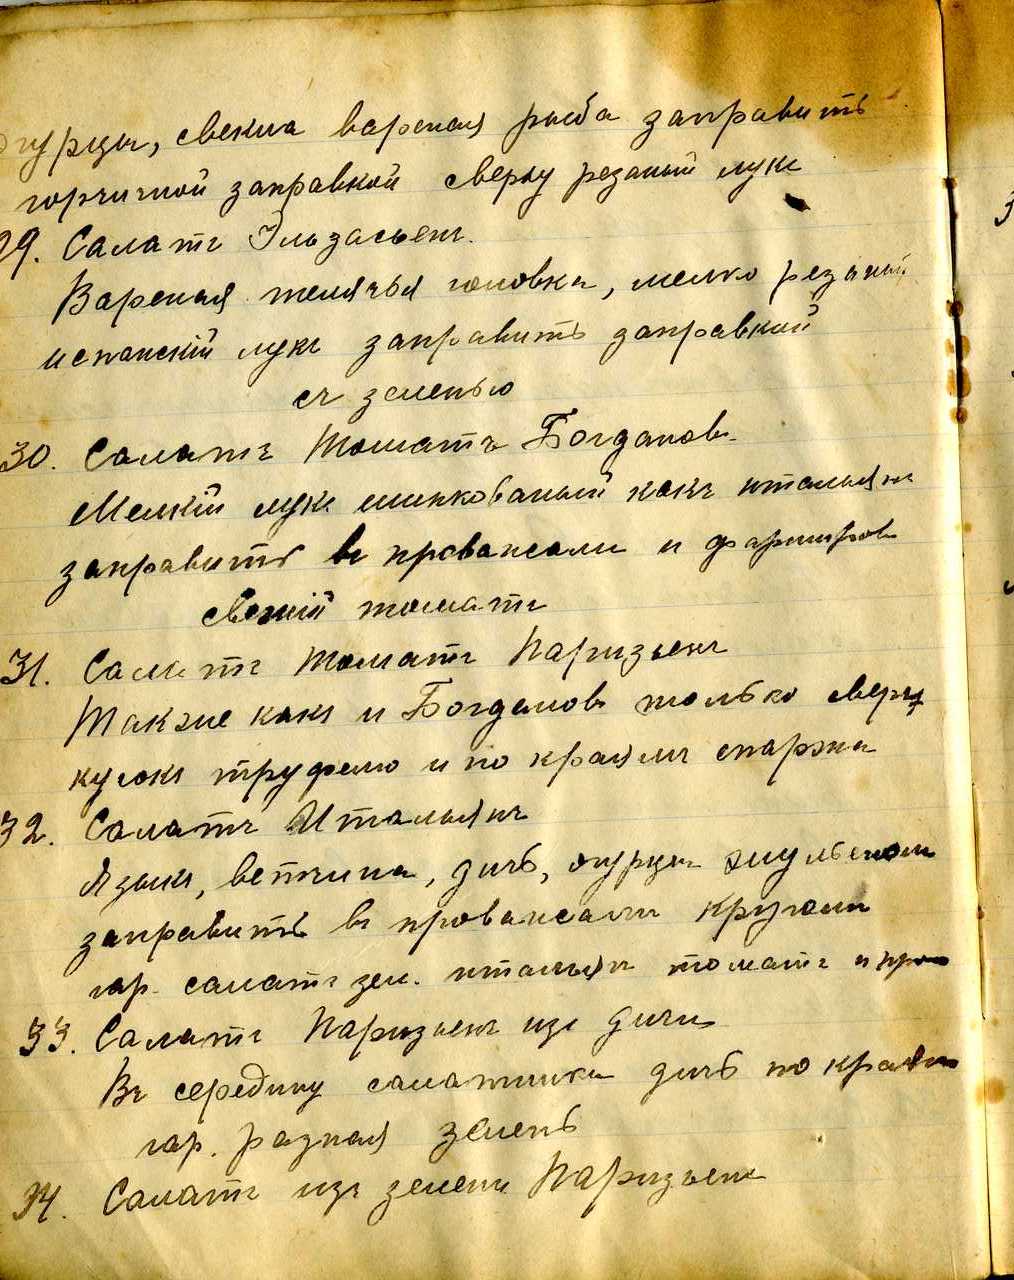 огурцы, свекла вареная рыба заправить
горчичной заправкой сверху резаный лукъ
29. Салатъ Эльзасьенъ.
Вареная телячья головка, мелко резаный
испанскій лукъ заправить заправкой
съ зеленью
30. Салатъ Томатъ Богдановъ
Мелкій лукъ шинкованый какъ итальянъ
заправить въ провансали и фарширов
свежій томатъ
31. Салатъ Томатъ Паризьенъ
Также какъ и Богдановъ только сверху
кусокъ труфелю и по краямъ спаржа
32. Салатъ Итальянъ
Языкъ, ветчина, дичь, огурцы жульеномъ
заправить въ провансали кругомъ
гар. салатъ зел. итальян томатъ и
33. Салатъ Паризьенъ изъ дичи
Въ середину салатника дичь по краямъ
гар. разная зелень
34. Салатъ изъ зелени Паризьенъ
3